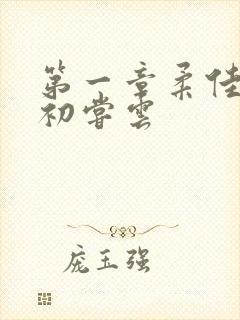 第一章柔佳
初尝云
庞玉强